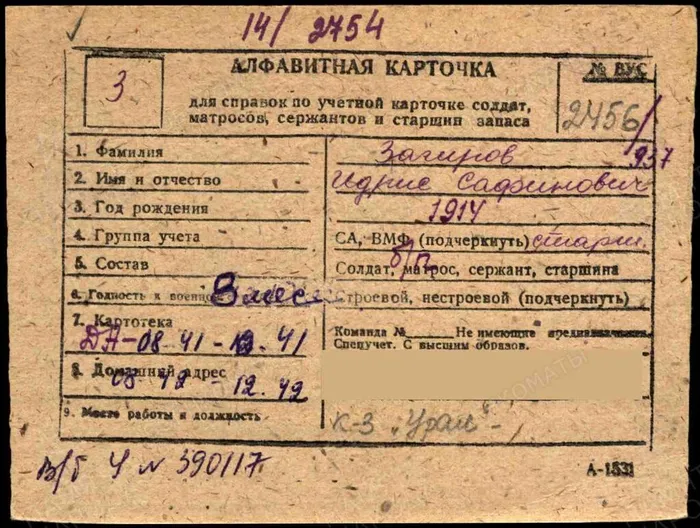 14/ 2754
3
АЛФАВИТНАЯ КАРТОЧКА
№ ВУС
для справок по учетной карточке солдат,
матросов, сержантов и старшин запаса
2456/
957
1. Фамилия Загиров
2. Имя и отчество Идрис Сафинович
3. Год рождения 1914
4. Группа учета СА, ВМФ (подчеркнуть) старш.
5. Состав Солдат, матрос, сержант, старшина
6. Годность к военной строевой, нестроевой (подчеркнуть)
7. Картотека Команда № Не имеющие предназначения.
Спецучет. С высшим образов.
ДА-08.41 - 12.41
8. Домашний адрес
08.42 - 12.42
9. Место работы и должность к-з „Урал"-
В/б Ч № 390117
А-1531